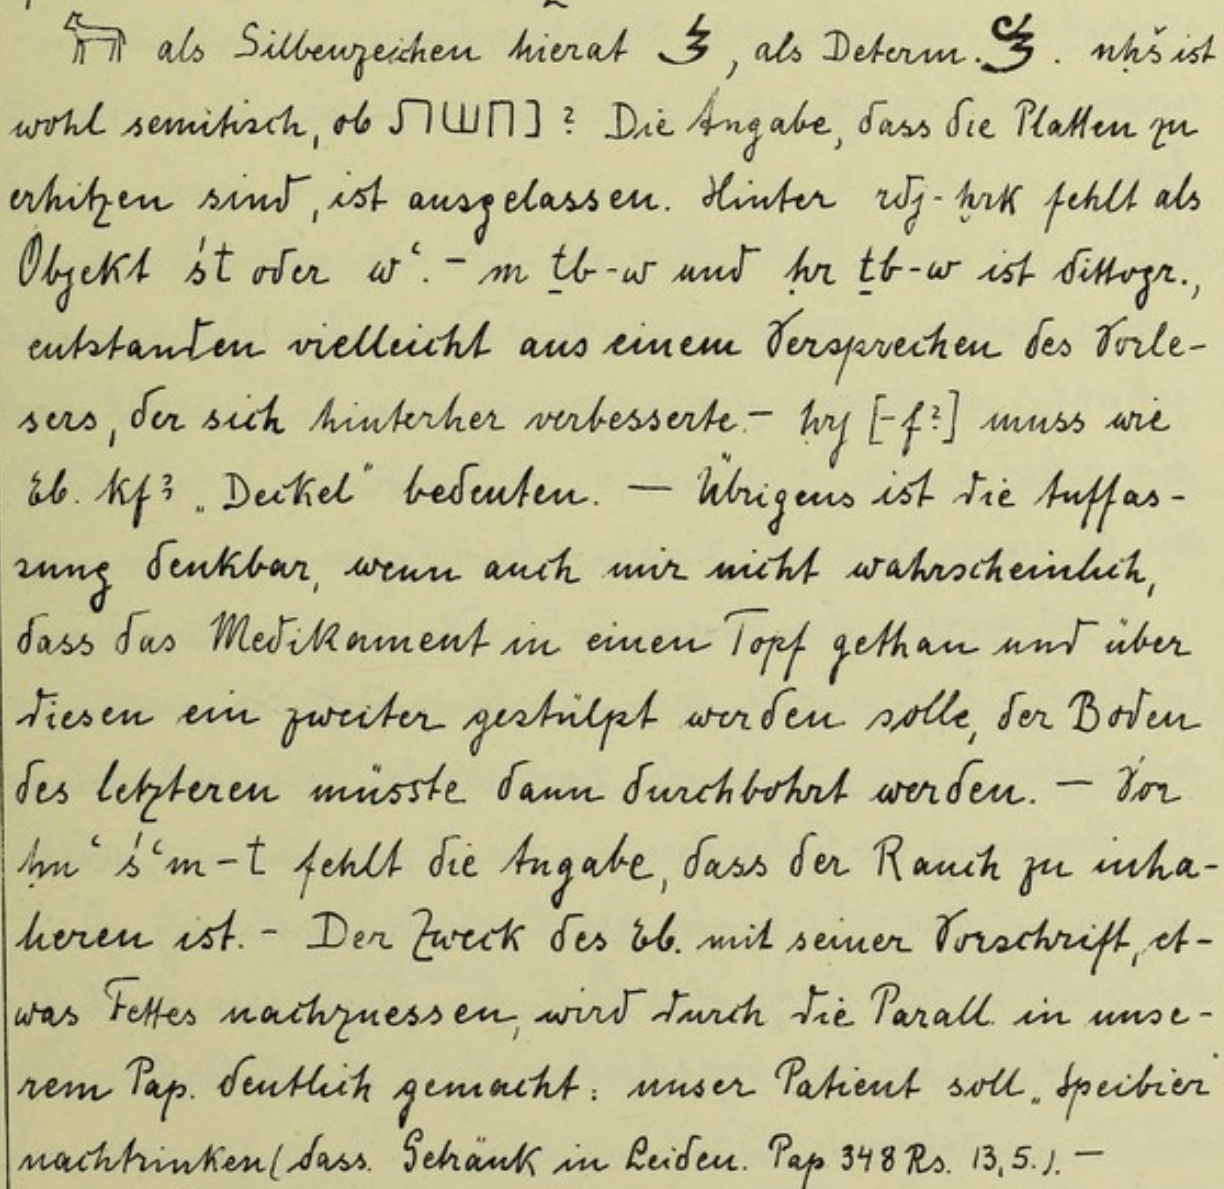 als Silbenzeichen hierat , als Determ. . nḥš ist
wohl semitisch, ob נחשת? Die Angabe, dass die Platten zu
erhitzen sind, ist ausgelassen. Hinter rdj-ḫrk fehlt als
Objekt śt oder wʿ. – m ṯb-w und ḥr ṯb-w ist dittogr.,
entstanden vielleicht aus einem Versprechen des Vorle-
sers, der sich hinterher verbesserte. – ḥrj [-f?] muss wie
Eb. kfꜣ „Deckel“ bedeuten. — Übrigens ist die Auffas-
sung denkbar, wenn auch mir nicht wahrscheinlich,
dass das Medikament in einen Topf gethan und über
diesen ein zweiter gestülpt werden solle, der Boden
des letzteren müsste dann durchbohrt werden. — Vor
ḥnʿ śʿm-t fehlt die Angabe, dass der Rauch zu inha-
lieren ist. – Der Zweck des Eb. mit seiner Vorschrift, et-
was Fettes nachzuessen, wird durch die Parall. in unse-
rem Pap. deutlich gemacht: unser Patient soll „Speibier“
nachtrinken (dass. Getränk in Leiden. Pap 348 Rs. 13,5.). —